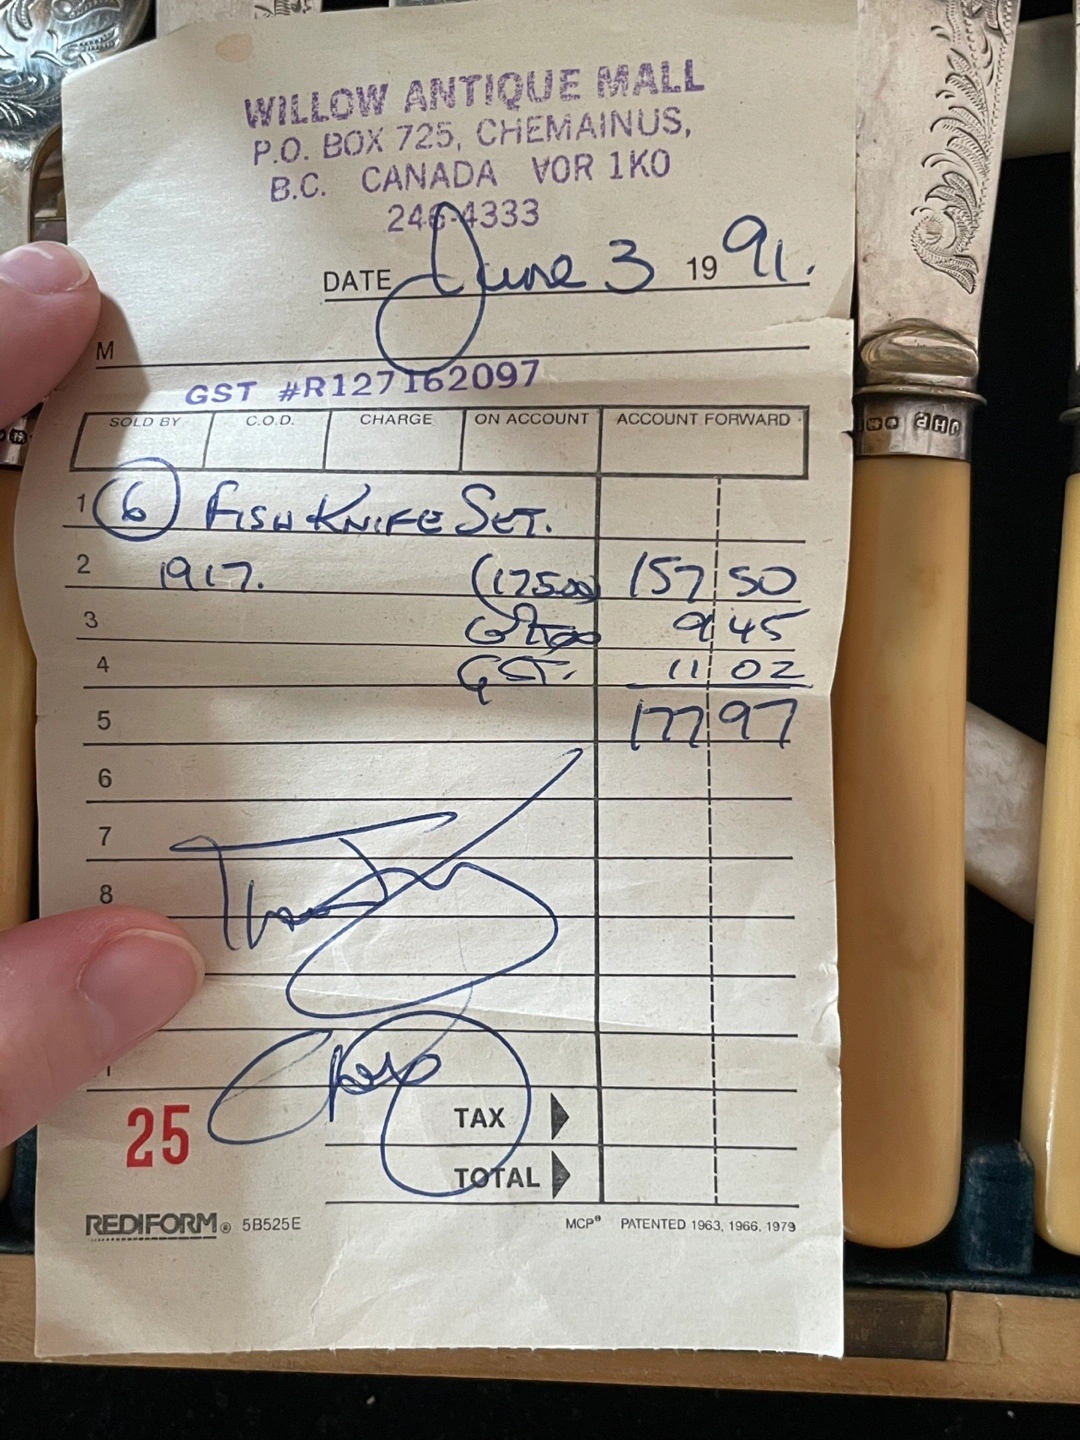 WILLOW ANTIQUE MALL
P.O. BOX 725, CHEMAINUS,
B.C. CANADA V0R 1K0
246-4333
DATE June 3 19 91.
M
GST #R127162097
SOLD BY C.O.D. CHARGE ON ACCOUNT ACCOUNT FORWARD
1 (6) FISH KNIFE SET.
2 1917. (175.00) 157 50
3 9 45
4 GST. 11 02
5 177 97
6
7
8
TAX
25
TOTAL
REDIFORM® 5B525E MCP® PATENTED 1963, 1966, 1979
JHP